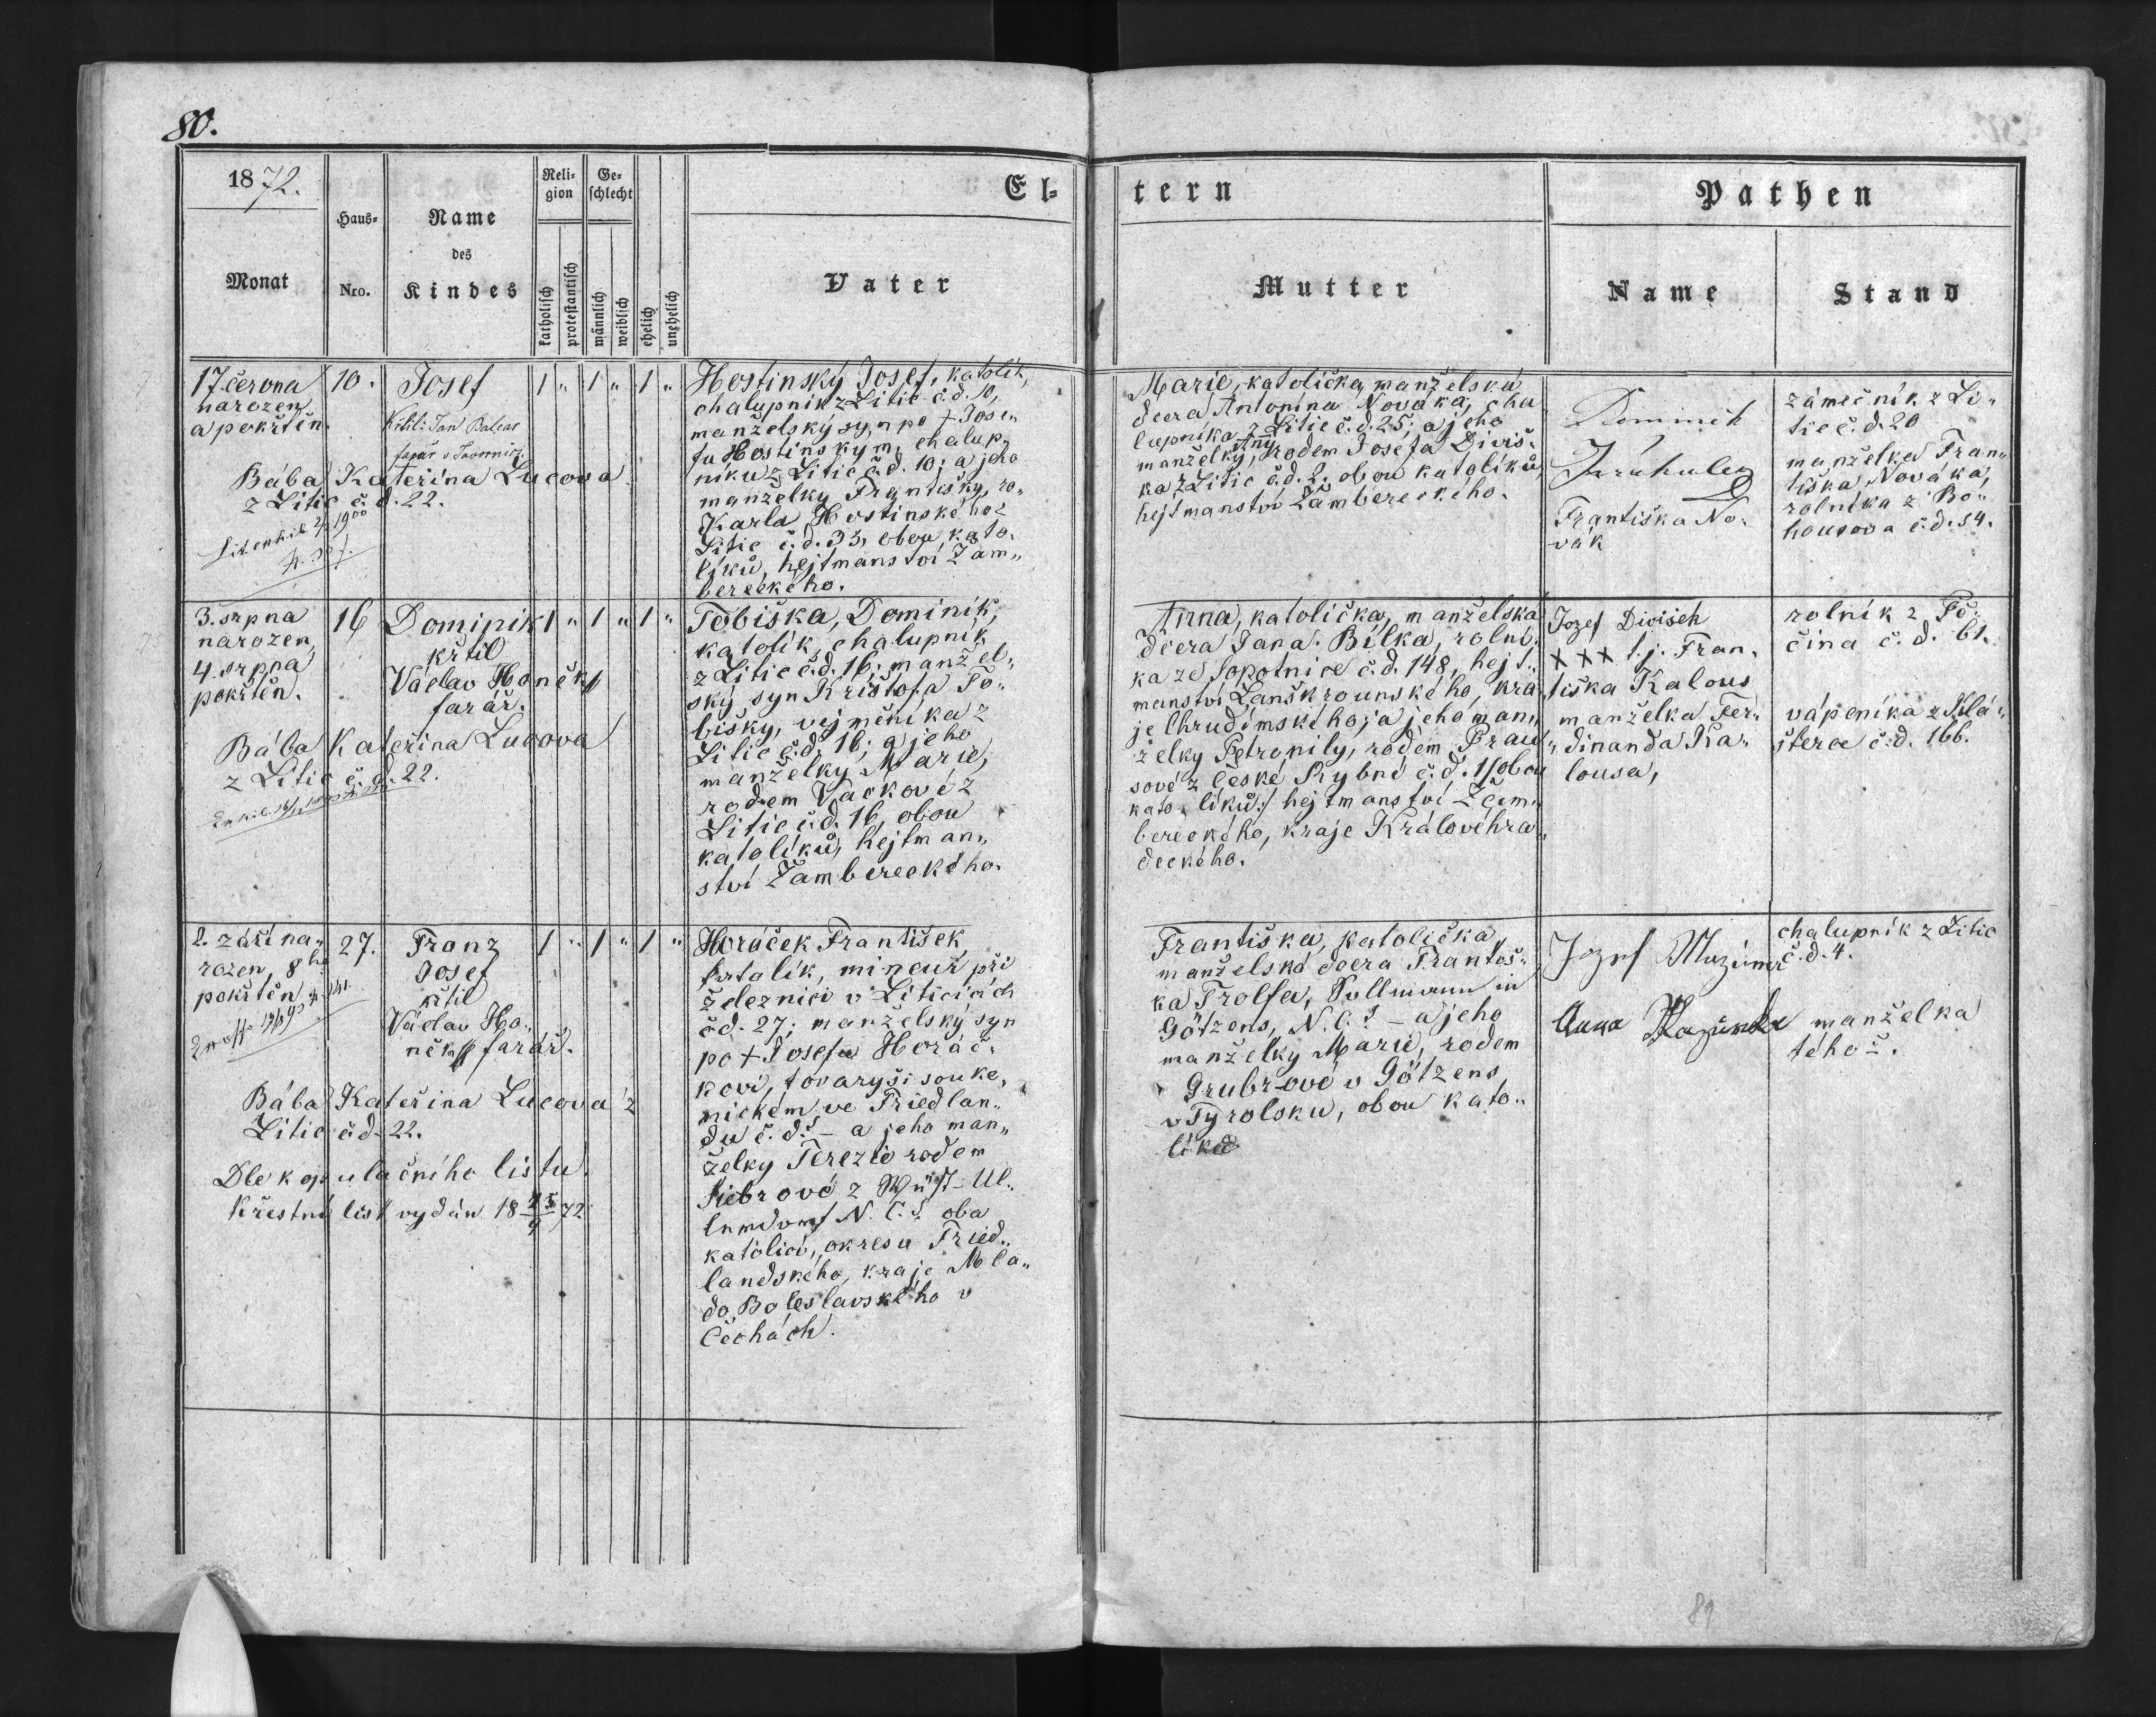 80.
1872.
Monat
Haus-
Nro.
Name
des
Kindes
Reli-
gion
Ge-
schlecht
katholisch
protestantisch
männlich
weiblich
ehelich
unehelich
El-
tern
Vater
Mutter
Pathen
Name
Stand
17 června
narozen
a pokřtěn.
10.
Josef
Křtil: Jan
farář v
1 " 1 " 1 "
Bába Kateřina Lucova
z Litic č. d. 22.
Hostinský Josef, katolík,
chalupník z Litic č. d. 10,
manželský syn po † Jose-
fu Hostinským, chalup-
níku z Litic č. d. 10; a jeho
manželky Františky, ro.
Karla Hostinského z
Litic č. d. 33, obou kato-
líků, hejtmanství Žam-
bereckého.
Marie, katolička, manželská
dcera Antonína Nováka, cha
lupníka z Litic č. d. 25; a jeho
manželky Anny, rodem Josefa Diviš-
ka z Litic č. d. 2. obou katolíků,
hejtmanství Žambereckého.
Dominik
Františka No-
vák
zámečník z Li-
tic č. d. 20
manželka Fran-
tiška Nováka,
rolníka z Bo-
housova č. d. 54.
3. srpna
narozen,
4. srpna
pokřtěn.
16
Dominik
křtil
Václav Honěk
farář.
1 " 1 " 1 "
Bába Kateřina Lucova
z Litic č. d. 22.
Tobiška, Dominik,
katolík, chalupník
z Litic č. d. 16; manžel-
ský syn Krištofa To-
bišky, vejměníka z
Litic č. d. 16; a jeho
manželky Marie,
rodem Vackové z
Litic č. d. 16, obou
katolíků, hejtman-
ství Žambereckého.
Anna, katolička, manželská
dcera Jana Bílka, rolní-
ka ze Sopotnice č. d. 148, hejt-
manství Lanškrounského, kra-
je Chrudimského; a jeho man-
želky Petronily, rodem
sové z České Rybné č. d. 1 /obou
katolíků:/ hejtmanství Žam-
bereckého, kraje Královéhra-
deckého.
Jozef Divisch
+++ t. j. Fran-
tiška Kalous
manželka Fer-
dinanda Ka-
lousa,
rolník z Po-
čína č. d. 61.
vápeníka z Klá-
šterce č. d. 166.
2. září na-
rozen, 8ho
pokřtěn
27.
Franz
Josef
křtil
Václav Ho-
něk farář.
1 " 1 " 1 "
Bába Kateřina Lucova z
Litic č. d. 22.
Dle kopulačního listu.
Křestní list vydán 18 25/9 72
Horáček František,
katolík, mineur při
železnici v Liticích
č. d. 27; manželský syn
po † Josefu Horáč-
kovi, tovaryši souke-
nickém ve Friedlan-
du č. d. ? – a jeho man-
želky Terezie rodem
Siebrové z Wüst-Ul-
lersdorf N. C. ? oba
katolíci, okresu Fried-
landského, kraje Mla-
do Boleslavského v
Čechách.
Františka, katolička
manželská dcera Františ-
ka Trolfa, Pollmann in
Götzens, N. C. ? – a jeho
manželky Marie, rodem
Grubrové v Götzens
v Tyrolsku, obou kato-
líků
Jozef
Anna
chalupník z Litic
č. d. 4.
manželka
téhož.
89